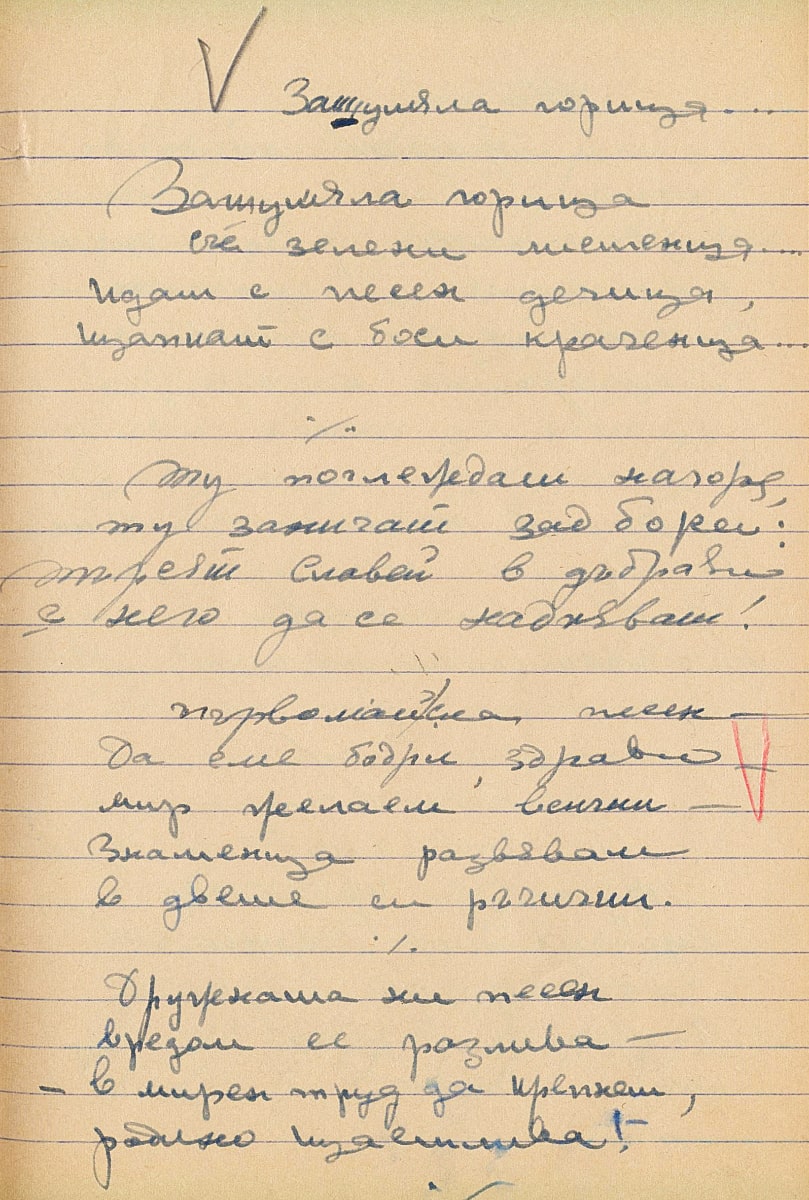 Зашумяла горица....
Зашумяла горица
със зелени листенца....
Идат с песен дечица,
щапкат с боси краченца...
Ту поглеждат нагоре,
ту заничат зад борей:
търсят славей в дъбрави
с него да се надпяват!
Първомайска песен —
Да сме бодри, здрави —
мир желаем всички —
Знаменца развяваме
в двете си ръчички.
Дружната ни песен
вредом се разлива —
– в мирен труд да крепнеш,
родино щастлива!